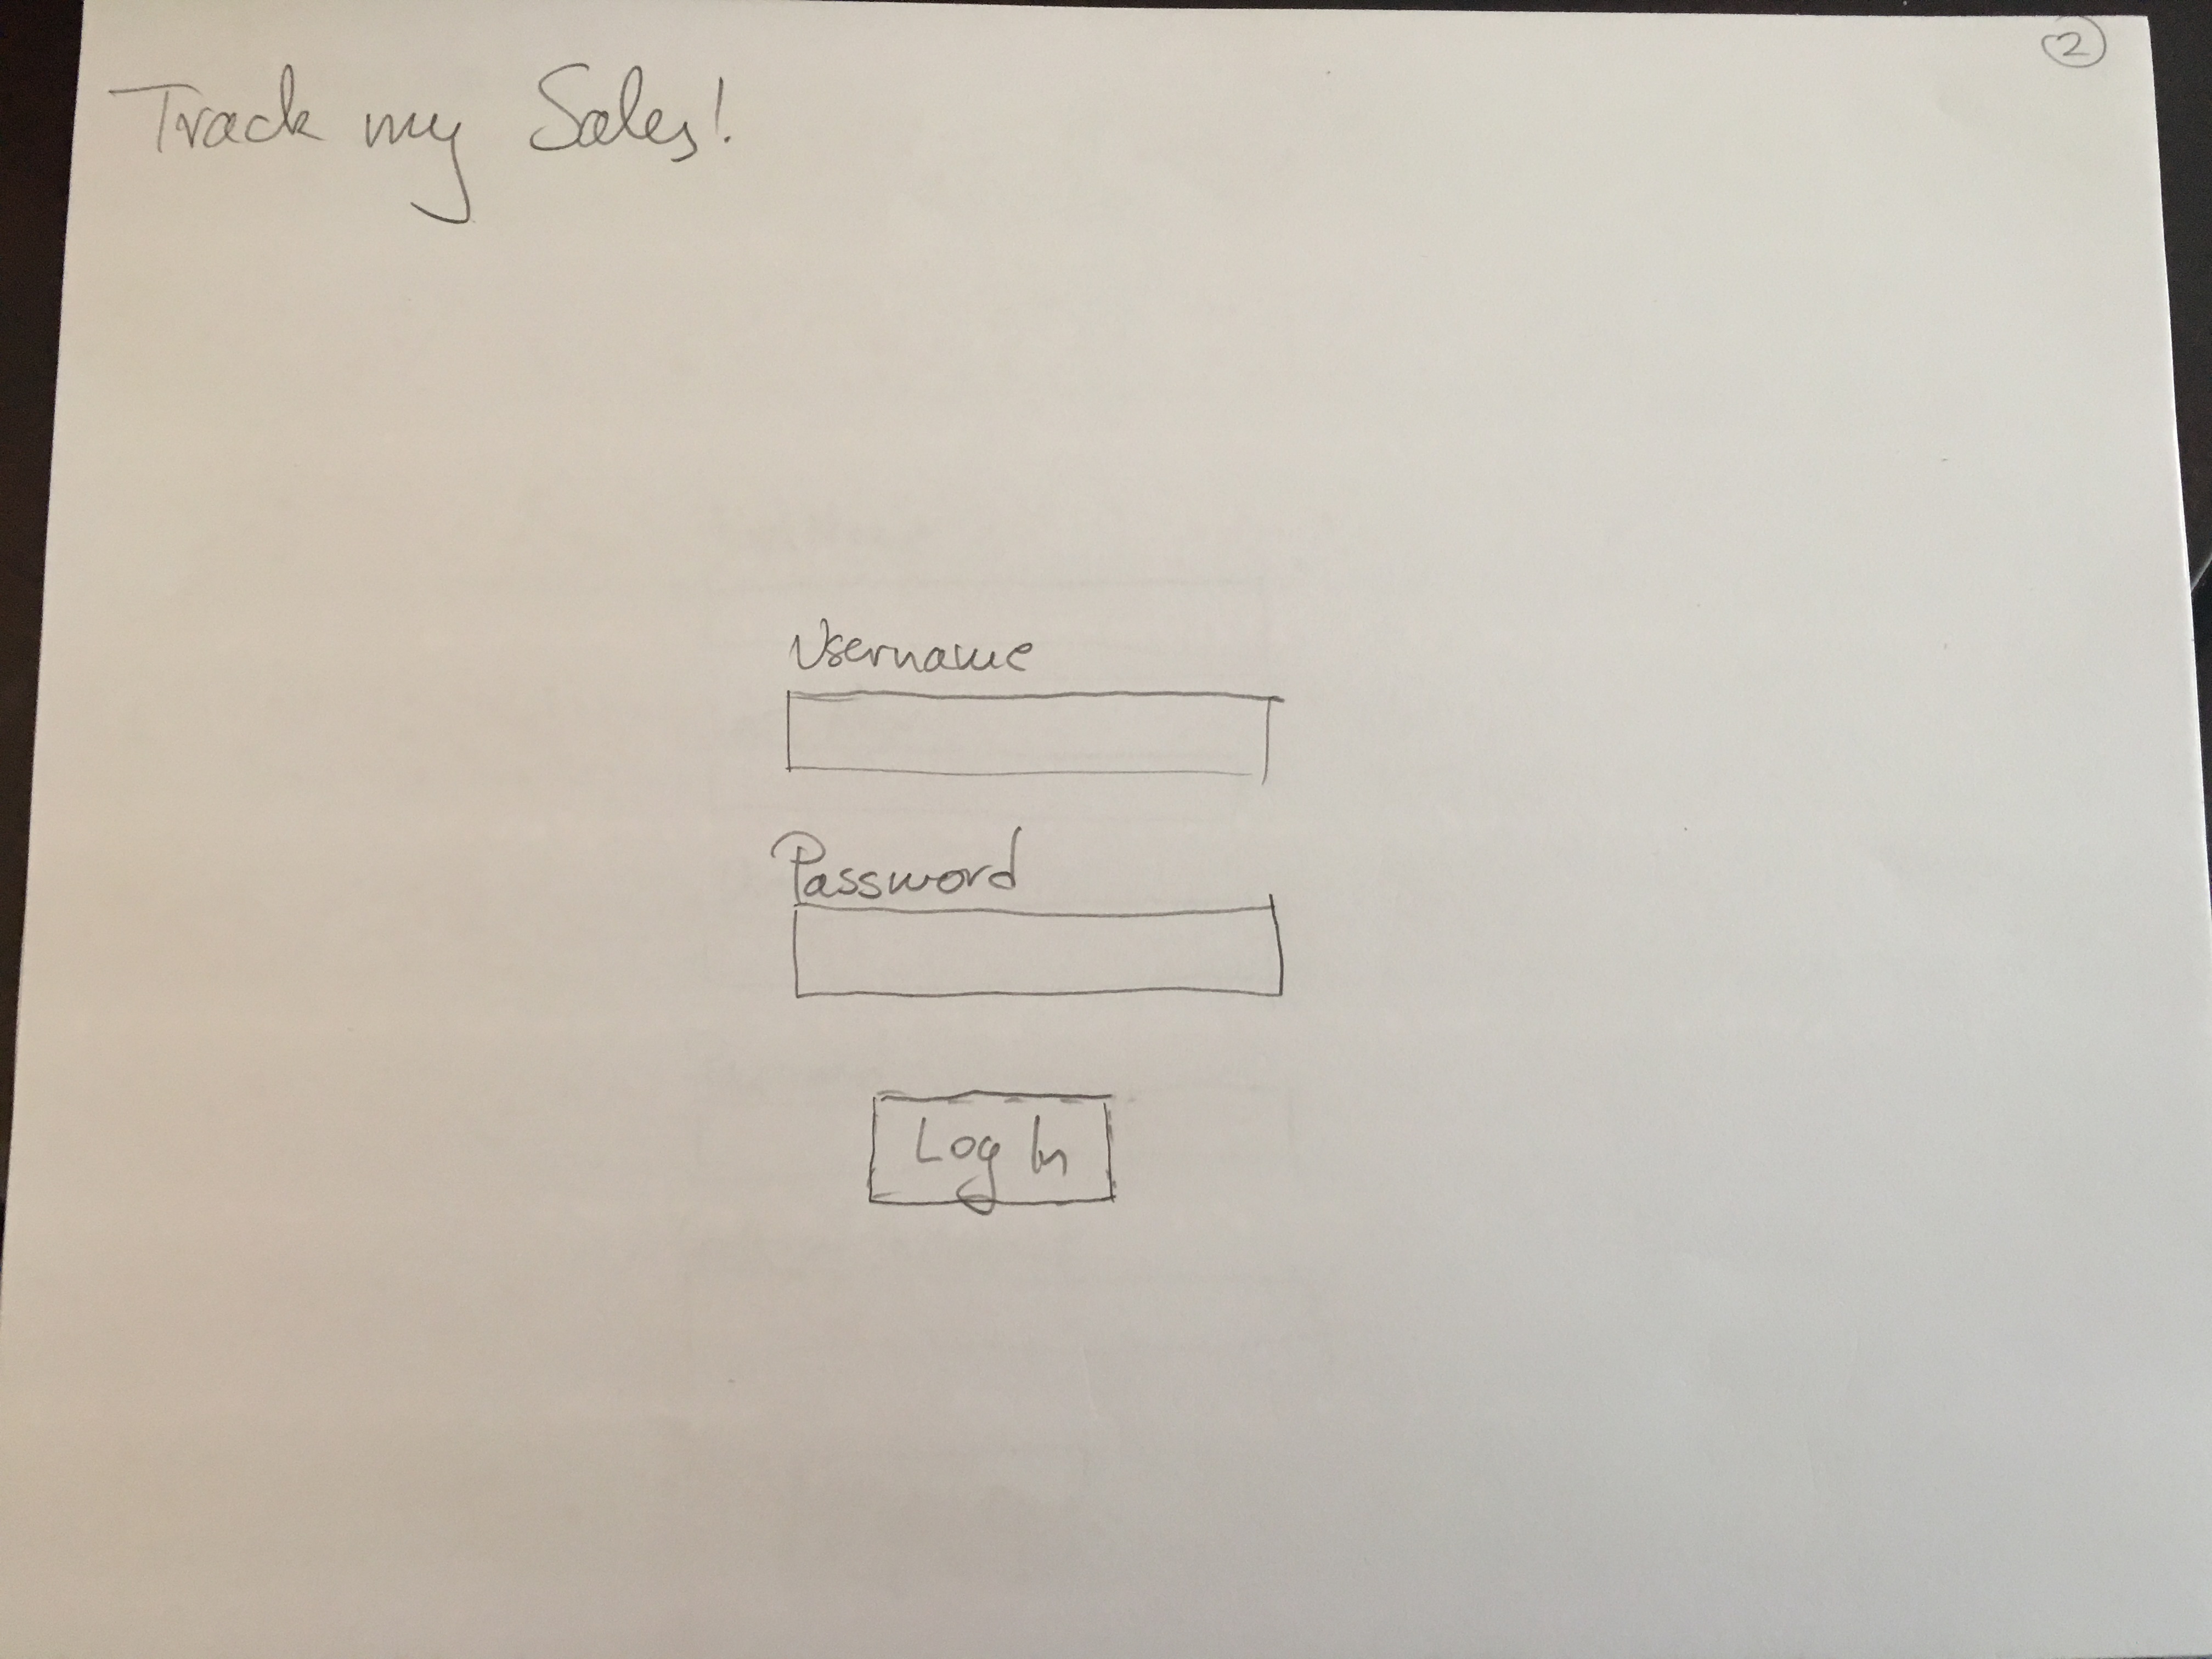 2
Track my Sales!
Username
Password
Log In